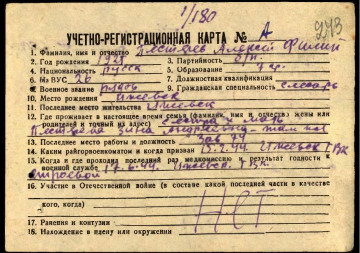 1/180
243
УЧЕТНО-РЕГИСТРАЦИОННАЯ КАРТА № А
1. Фамилия, имя и отчество Алексей
2. Год рождения 1925 3. Партийность б/п
4. Национальность русск 5. Образование 7 кл.
6. № ВУС 26 7. Должностная квалификация
8. Военное звание рядов 9. Гражданская специальность слесарь
10. Место рождения Ижевск
11. Последнее место жительства Ижевск
12. Где проживает в настоящее время семья (фамилия, имя и отчество) жены или
родителей и точный их адрес) мать
там же
13. Последнее место работы и должность Зав. 74
14. Каким райгорвоенкоматом и когда призван Ижевск
15. Когда и где проходил последний раз медкомиссию и результат годности к
военной службе 17.6.44 Ижевск
строевой
16. Участие в Отечественной войне (в составе какой последней части в качестве
кого, когда) Нет
17. Ранения и контузии
18. Нахождение в плену или окружении